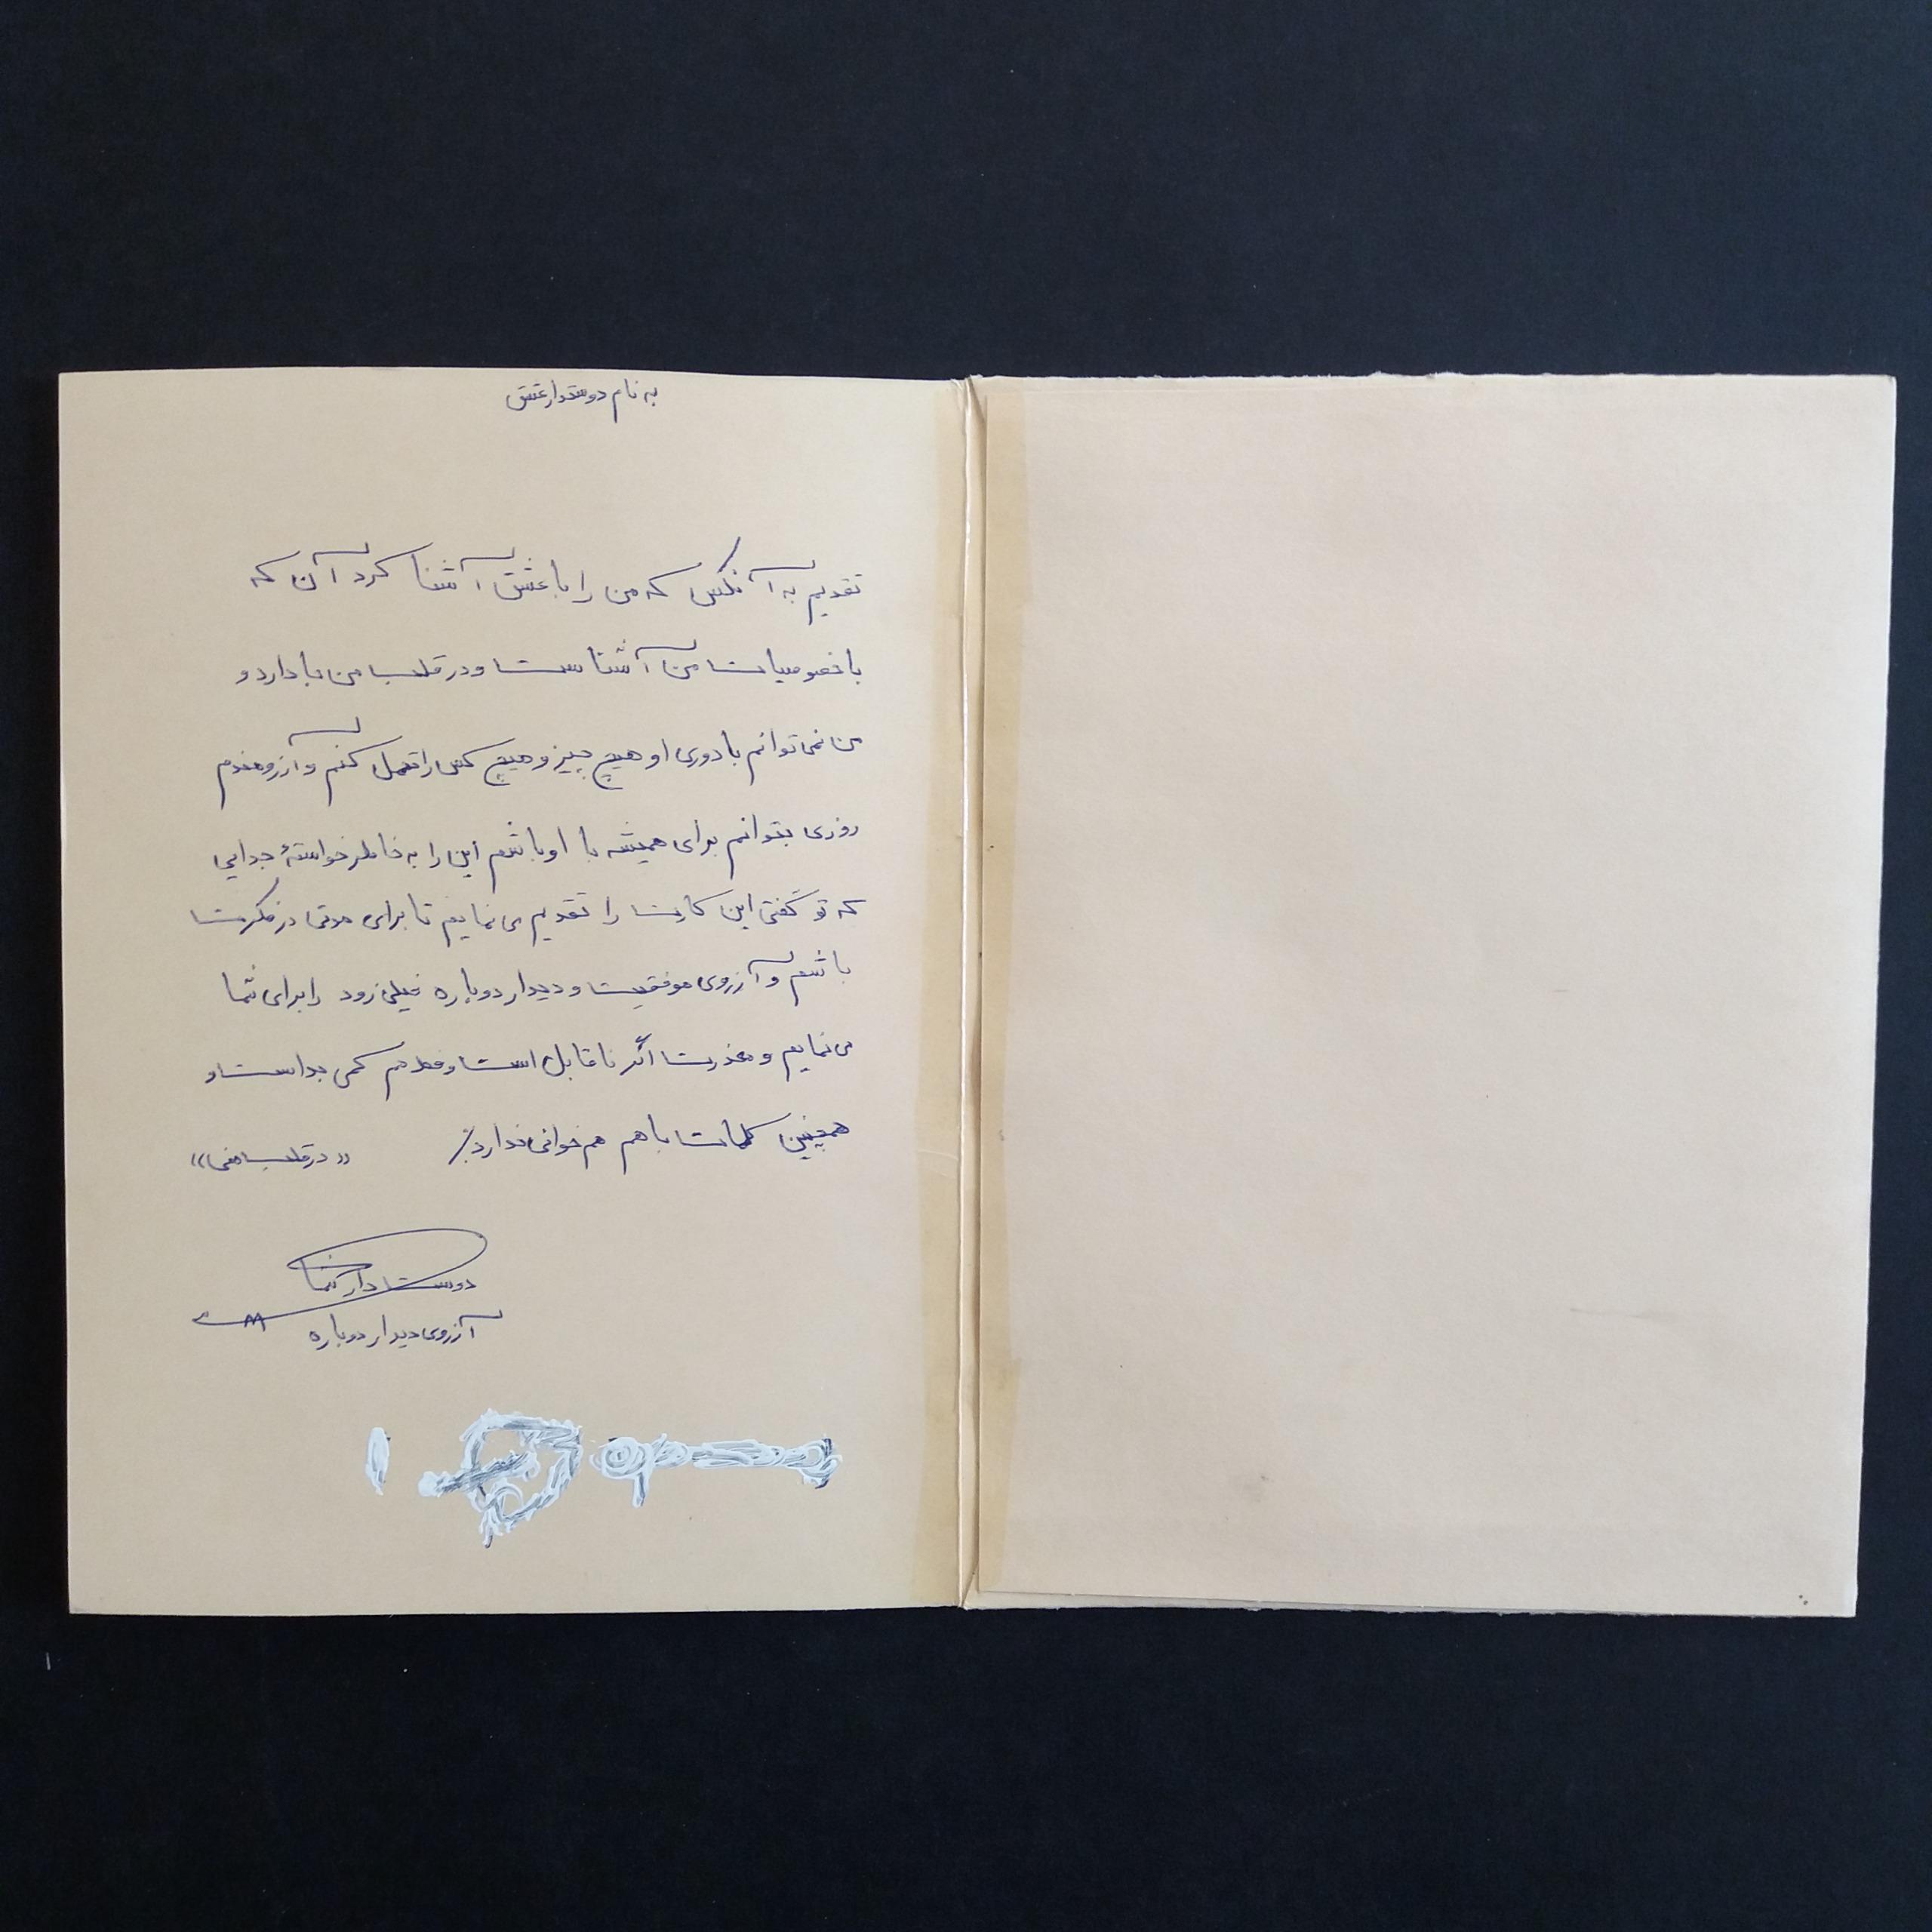 به نام دوستدار عشق
تقدیم به آنکس که من را با عشق آشنا کرد آن که
با خصوصیات من آشناست و در قلب من جا دارد و
من نمی توانم با دوری او هیچ چیز و هیچ کس را تحمل کنم و آرزومندم
روزی بتوانم برای همیشه با او باشم این را به خاطر خواستهٔ جدایی
که تو گفتی این کارت را تقدیم می نمایم تا برای مدتی در فکرت
باشم و آرزوی موفقیت و دیدار دوباره خیلی زود را برای شما
می نمایم و معذرت اگر ناقابل است و خط هم کمی بد است و
همچنین کلمات با هم هم خوانی ندارد./ «در قلب منی»
دوست دار شما
آرزوی دیدار دوباره